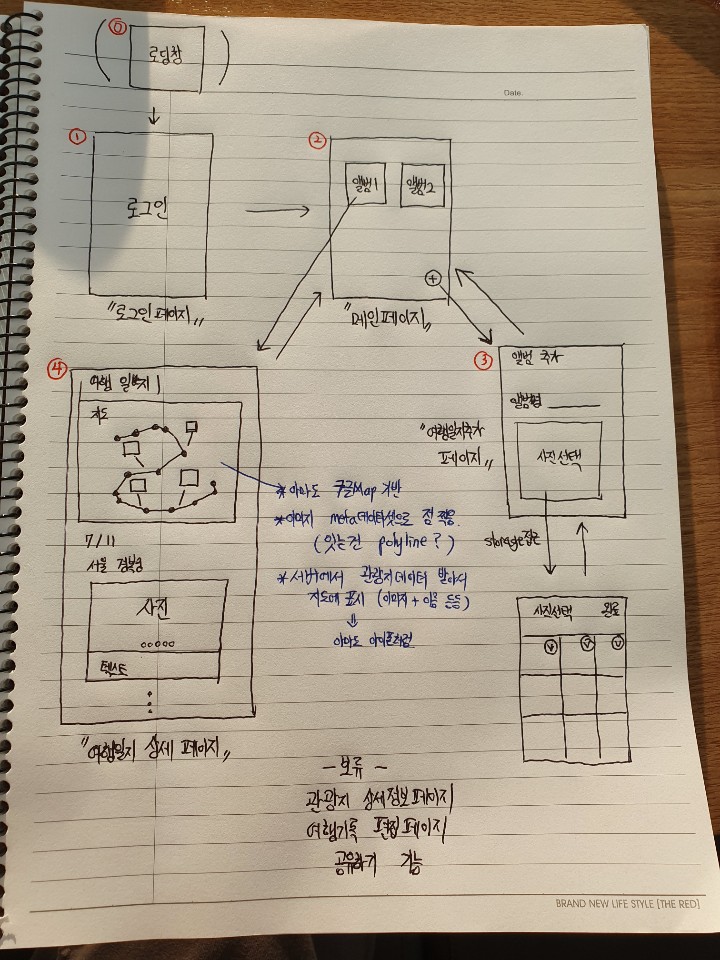 ⓪
로딩창
Date.
①
로그인
"로그인 페이지"
②
앨범1
앨범2
+
"메인페이지"
③
앨범 추가
앨범명
사진선택
"여행일지추가
페이지"
storage접근
사진선택 완료
④
여행 일지
지도
7/11
서울 경복궁
사진
텍스트
"여행일지 상세 페이지"
* 아마도 구글Map 기반
* 이미지 meta데이터셋으로 점 찍음
(잇는건 polyline?)
* 서버에서 관광지데이터 받아서
지도에 표시 (이미지 + 이름 등등)
아마도 아이콘처럼
- 보류 -
관광지 상세정보페이지
여행기록 편집페이지
공유하기 기능
BRAND NEW LIFE STYLE [THE RED]